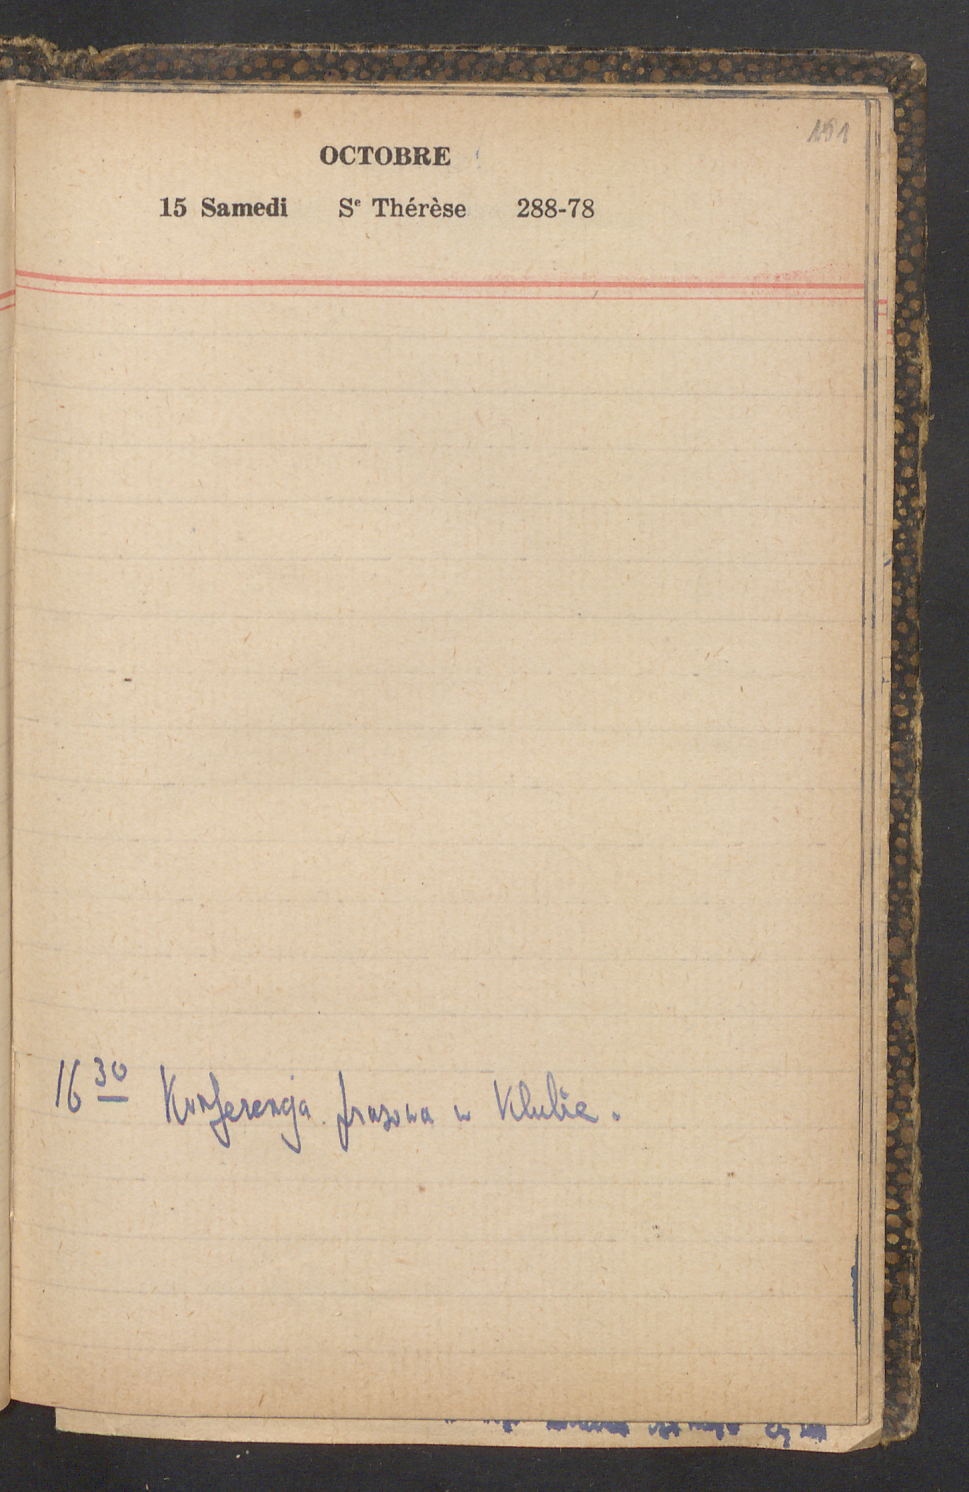 151
OCTOBRE
15 Samedi Sᵉ Thérèse 288-78
16 30 Konferencja prasowa w Klubie.